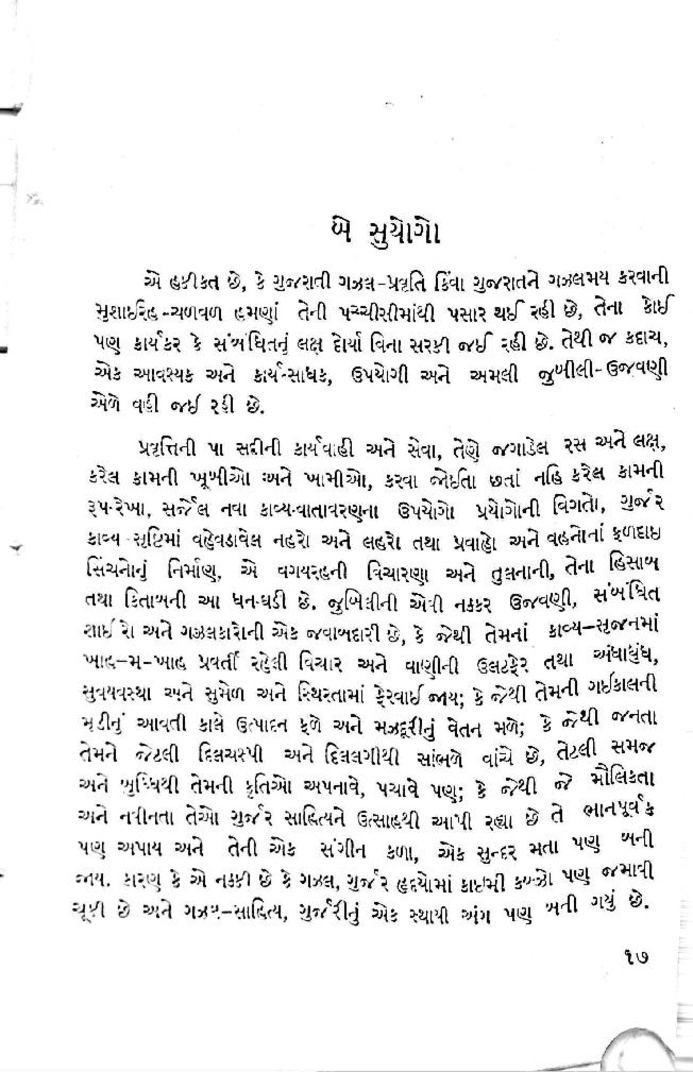 બે સુયોગો
એ હકીકત છે, કે ગુજરાતી ગઝલ-પ્રવૃતિ કિંવા ગુજરાતને ગઝલમય કરવાની
મુશાઈરહ-ચળવળ હમણાં તેની પચ્ચીસીમાંથી પસાર થઈ રહી છે, તેના કોઈ
પણ કાર્યકર કે સંબંધિતનું લક્ષ દોર્યા વિના સરકી જઈ રહી છે. તેથી જ કદાચ,
એક આવશ્યક અને કાર્ય-સાધક, ઉપયોગી અને અમલી જુબીલી-ઉજવણી
એળે વહી જઈ રહી છે.
પ્રવૃત્તિની પા સદીની કાર્યવાહી અને સેવા, તેણે જગાડેલ રસ અને લક્ષ,
કરેલ કામની ખૂબીઓ અને ખામીઓ, કરવા જોઈતા છતાં નહિ કરેલ કામની
રૂપ-રેખા, સર્જેલ નવા કાવ્ય-વાતાવરણના ઉપયોગો પ્રયોગોની વિગતો, ગુર્જર
કાવ્ય-સૃષ્ટિમાં વહેવડાવેલ નહરો અને લહરો તથા પ્રવાહો અને વહનોનાં ફળદાઇ
સિંચનોનું નિર્માણ, એ વગયરહની વિચારણા અને તુલનાની, તેના હિસાબ
તથા કિતાબની આ ધન-ઘડી છે. જુબિલીની એવી નક્કર ઉજવણી, સંબંધિત
શાઇરો અને ગઝલકારોની એક જવાબદારી છે, કે જેથી તેમનાં કાવ્ય-સૃજનમાં
ખાહ-મ-ખાહ પ્રવર્તી રહેલી વિચાર અને વાણીની ઉલટફેર તથા અંધાધુંધ,
સુવયવસ્થા અને સુમેળ અને સ્થિરતામાં ફેરવાઈ જાય; કે જેથી તેમની ગઈકાલની
મૂડીનું આવતી કાલે ઉત્પાદન ફળે અને મઝદૂરીનું વેતન મળે; કે જેથી જનતા
તેમને જેટલી દિલચસ્પી અને દિલલગીથી સાંભળે વાંચે છે, તેટલી સમજ
અને બુધ્ધિથી તેમની કૃતિઓ અપનાવે, પચાવે પણ; કે જેથી જે મૌલિકતા
અને નવીનતા તેઓ ગુર્જર સાહિત્યને ઉત્સાહથી આપી રહ્યા છે તે ભાનપૂર્વક
પણ અપાય અને તેની એક સંગીન કળા, એક સુન્દર મતા પણ બની
જાય. કારણ કે એ નક્કી છે કે ગઝલ, ગુર્જર હૃદયોમાં કાઇમી કબ્ઝો પણ જમાવી
ચૂકી છે અને ગઝલ-સાહિત્ય, ગુર્જરીનું એક સ્થાયી અંગ પણ બની ગયું છે.
૧૭